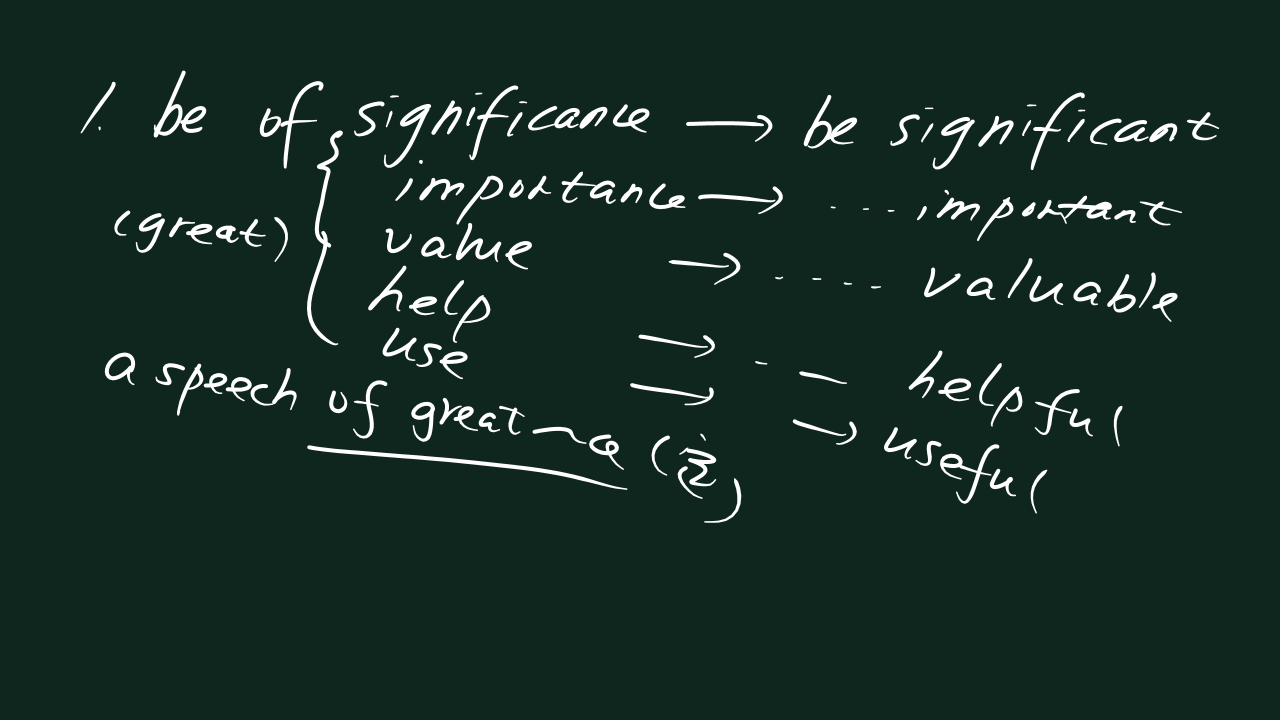 1. be of significance → be significant
importance → ... important
(great) value → .... valuable
help → . — helpful
use → → useful
a speech of great ~ce (定)